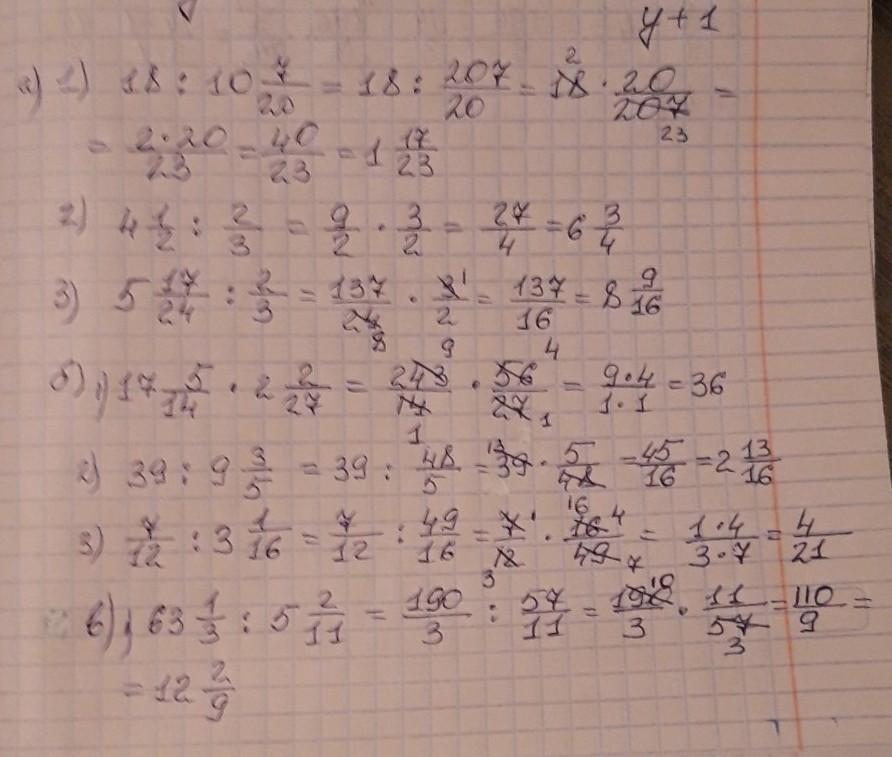 y + 1
а) 1) 18 : 10 7/20 = 18 : 207/20 = 18 2 · 20/207 23 =
= 2·20/23 = 40/23 = 1 17/23
2) 4 1/2 : 2/3 = 9/2 · 3/2 = 27/4 = 6 3/4
3) 5 17/24 : 2/3 = 137/24 8 · 3 1/2 = 137/16 = 8 9/16
б) 1) 17 5/14 · 2 2/27 = 243 9/14 1 · 56 4/27 1 = 9·4/1·1 = 36
2) 39 : 9 3/5 = 39 : 48/5 = 39 13 · 5/48 16 = 45/16 = 2 13/16
3) 7/12 : 3 1/16 = 7/12 : 49/16 = 7 1/12 3 · 16 4/49 7 = 1·4/3·7 = 4/21
в) 1) 63 1/3 : 5 2/11 = 190/3 : 57/11 = 190 10/3 · 11/57 3 = 110/9 =
= 12 2/9